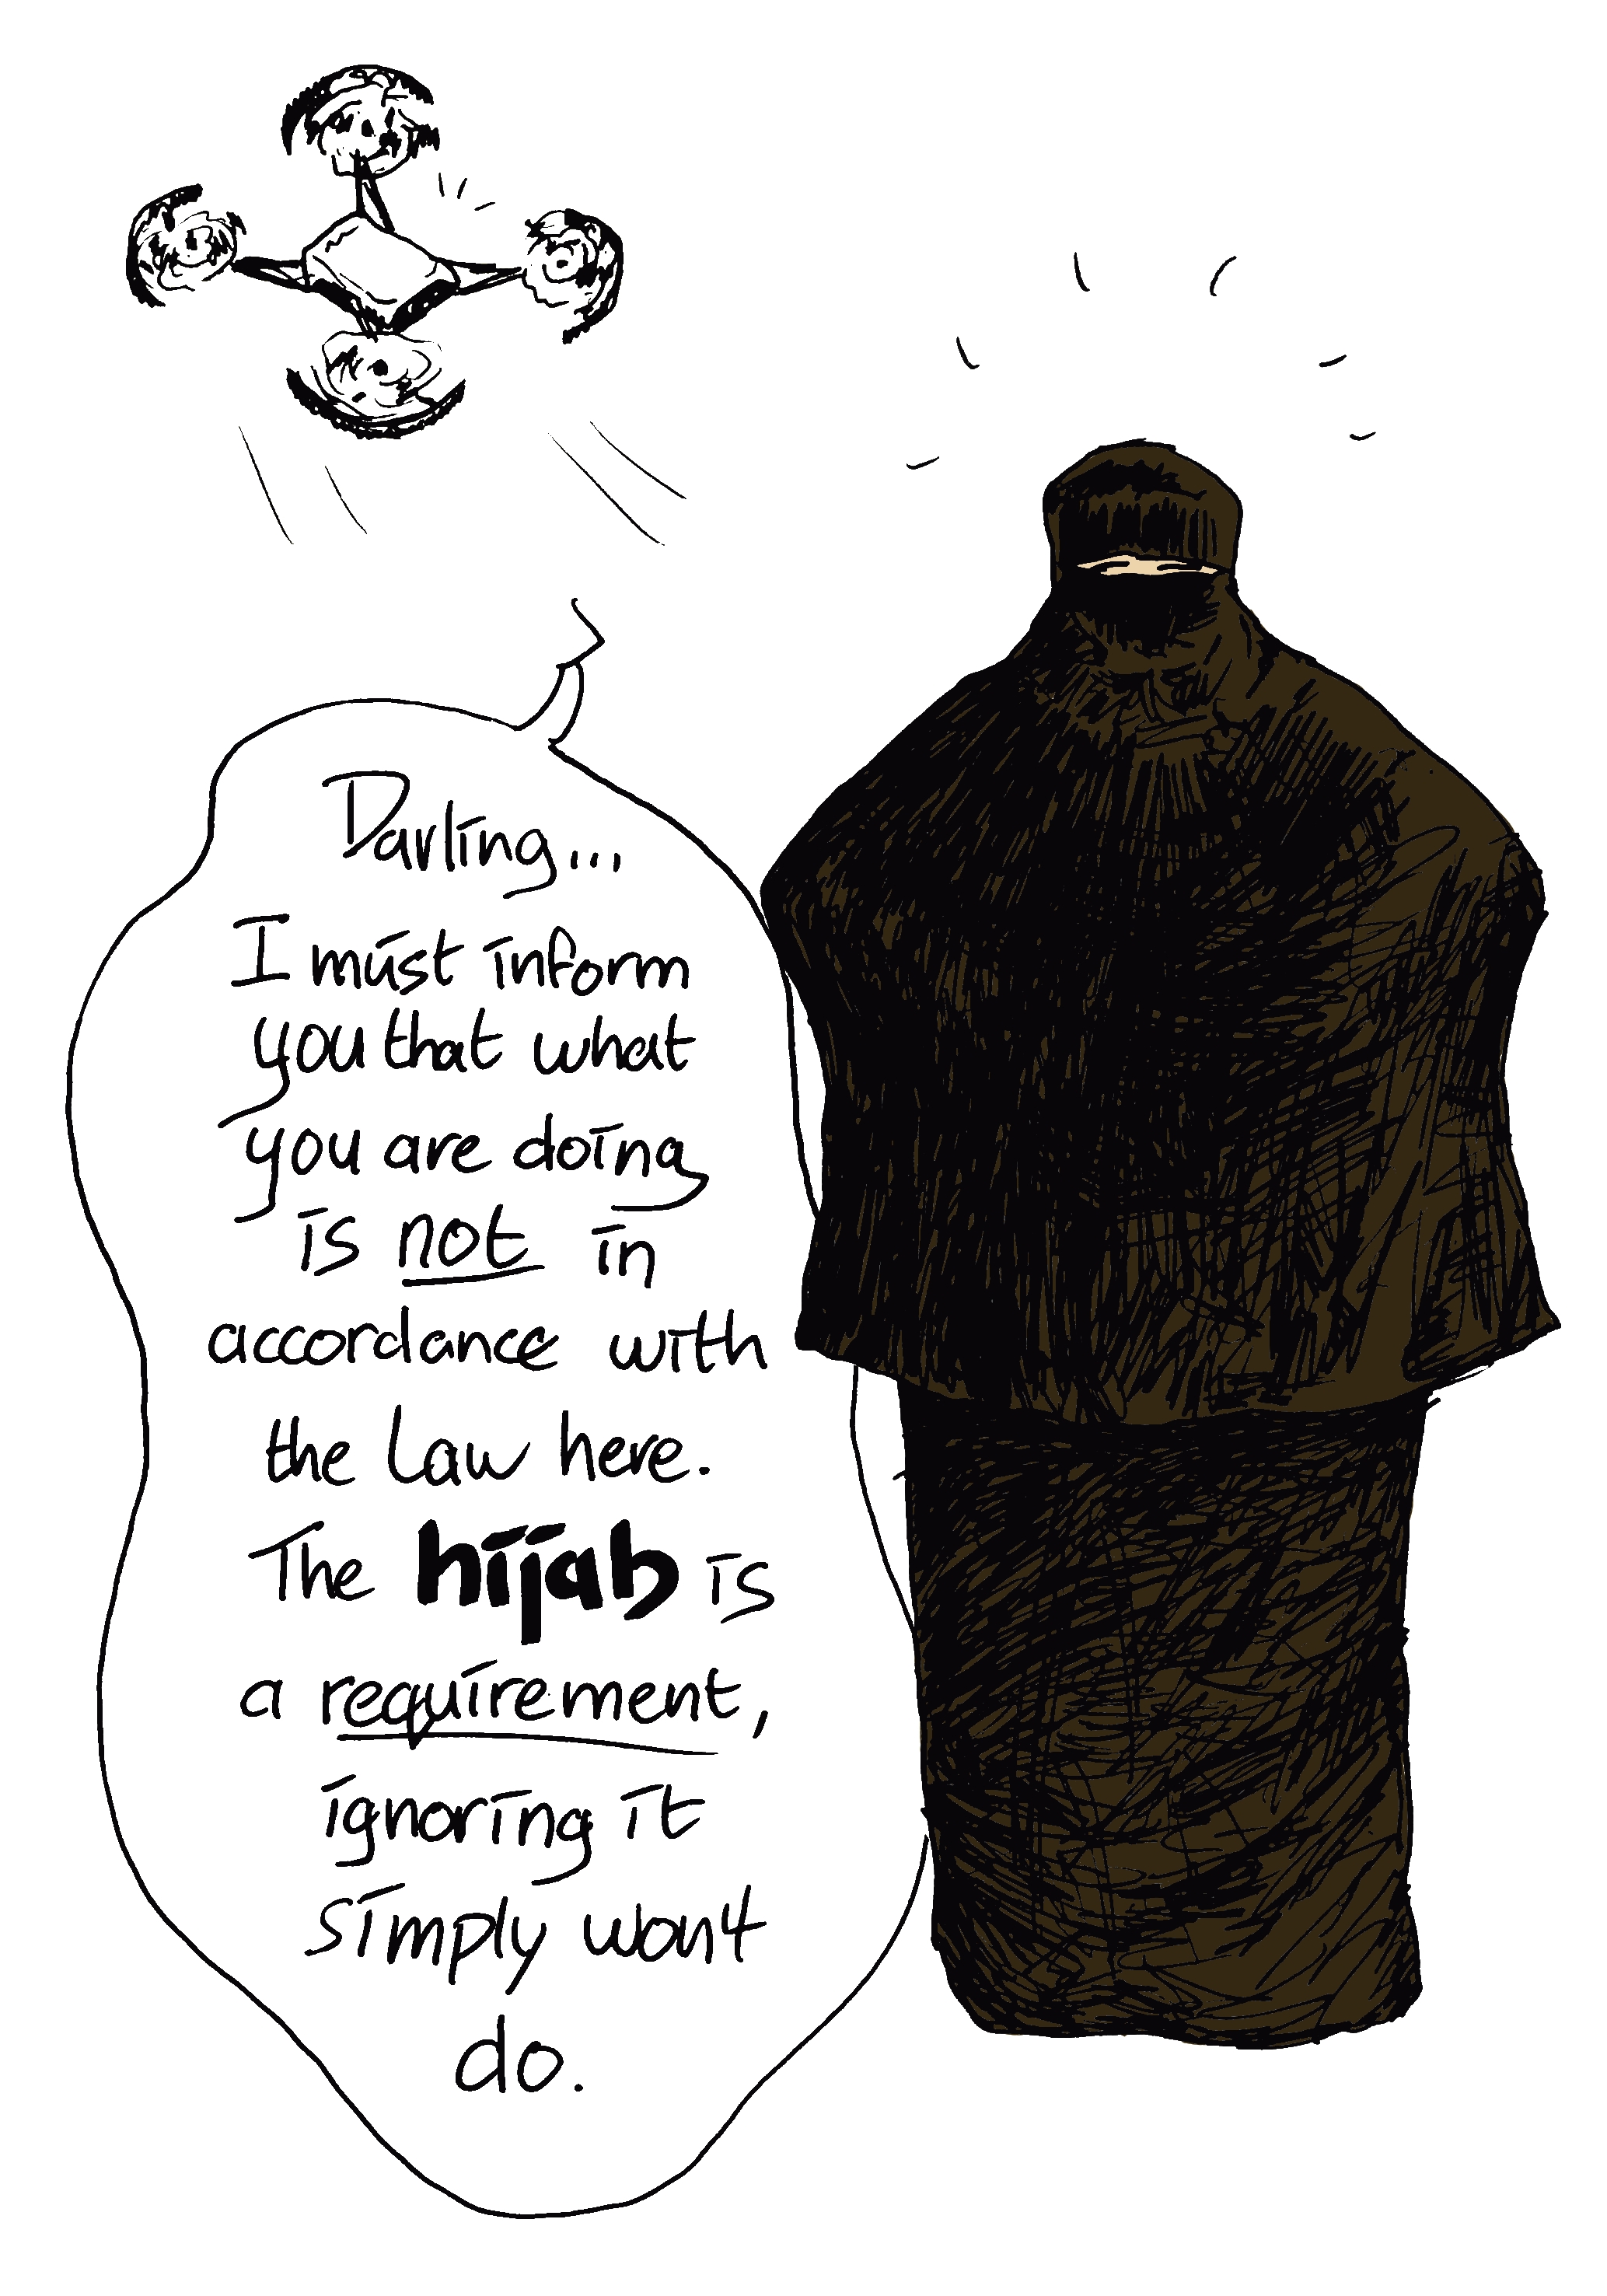 Darling...
I must inform
you that what
you are doing
is not in
accordance with
the Law here.
The hijab is
a requirement,
ignoring it
simply wont
do.